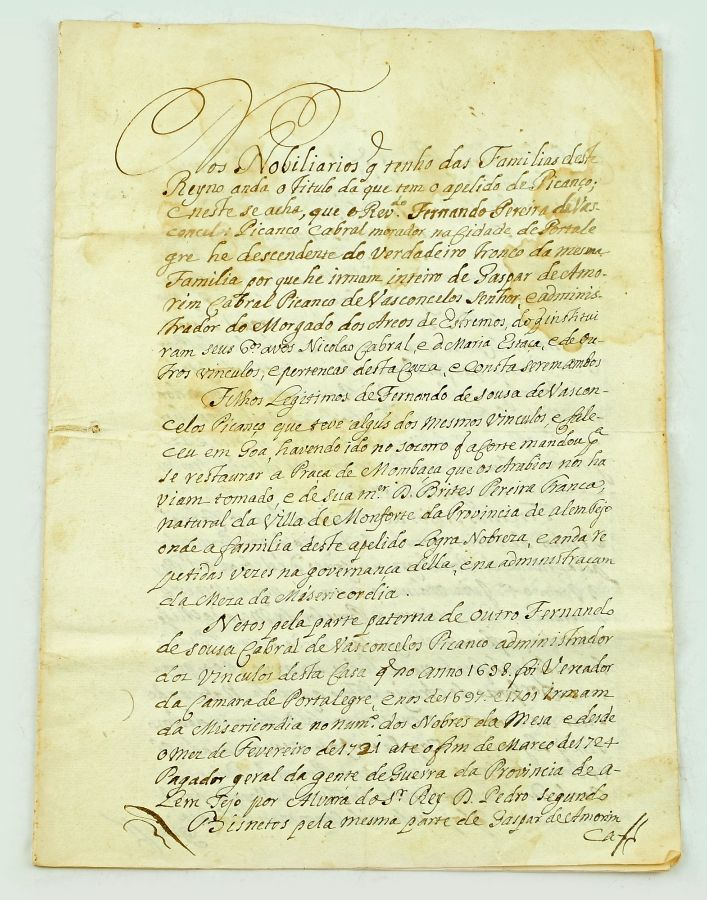 Nos Nobiliarios q̃ tenho das Familias deste
Reyno anda o Titulo da que tem o apelido de Picanço;
e neste se acha, que o Rev.do Fernando Pereira de Vas-
concel.s Picanco Cabral morador na Cidade de Portale
gre he descendente do Verdadeiro Tronco da mesma
Familia por que he irmam inteiro de Gaspar de Amo-
rim Cabral Picanco de Vasconcelos Senhor, e adminis-
trador do Morgado dos Arcos de Estremos, do q̃ institui
ram seus 6.os avós Nicolao Cabral, e d. Maria Estaça, e de Ou-
tros vinculos, e pertencas desta Caza, e Consta serem ambos
Filhos Legitimos de Fernando de sousa de Vascon-
celos Picanço que teve algũs dos mesmos Vinculos, e fale-
ceu em Goa, havendo ido no socorro q̃ a Corte mandou p.a
se restaurar a Praca de Mombaça que os Arabios nos ha
viam tomado, e de sua m.er D. Brites Pereira Franca,
natural da Villa de Monforte da Provincia de alem Tejo
onde a familia deste apelido Logra Nobreza, e anda re
petidas vezes na governança della, e na administracam
da Meza da Misericordia.
Netos pela parte paterna de outro Fernando
de sousa Cabral de Vasconcelos Picanco administrador
dos Vinculos desta Casa q̃ no anno 1698. foi Vereador
da Camara de Portalegre, e nos de 1697. e 1701 Irmam
da Misericordia no num.o dos Nobres da Mesa e desde
o Mez de Fevereiro de 1721 ate o fim de Marco de 1724
Pagador geral da gente de Guerra da Provincia de a-
Lem Tejo por Alvará do S.r Rey D. Pedro segundo
Bisnetos pela mesma parte de Gaspar de Amorim
Ca